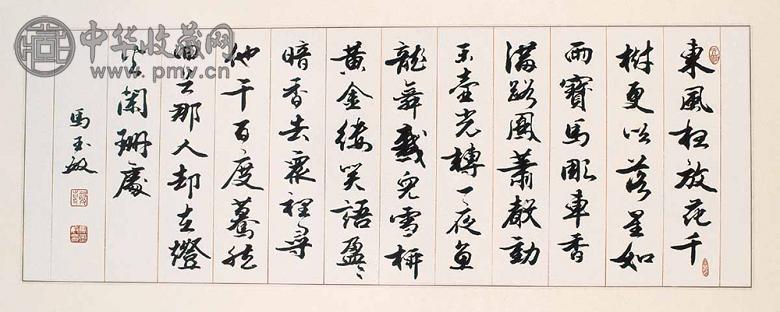 中华收藏网
www.pmyc.cn
東風狂放花千
樹更吹落星如
雨寶馬彫車香
滿路鳳蕭聲動
玉壺光轉一夜魚
龍舞蛾兒雪柳
黃金縷笑語盈々
暗香去衆裡尋
他千百度驀然
回首那人却在燈
火闌珊處
馬玉敏